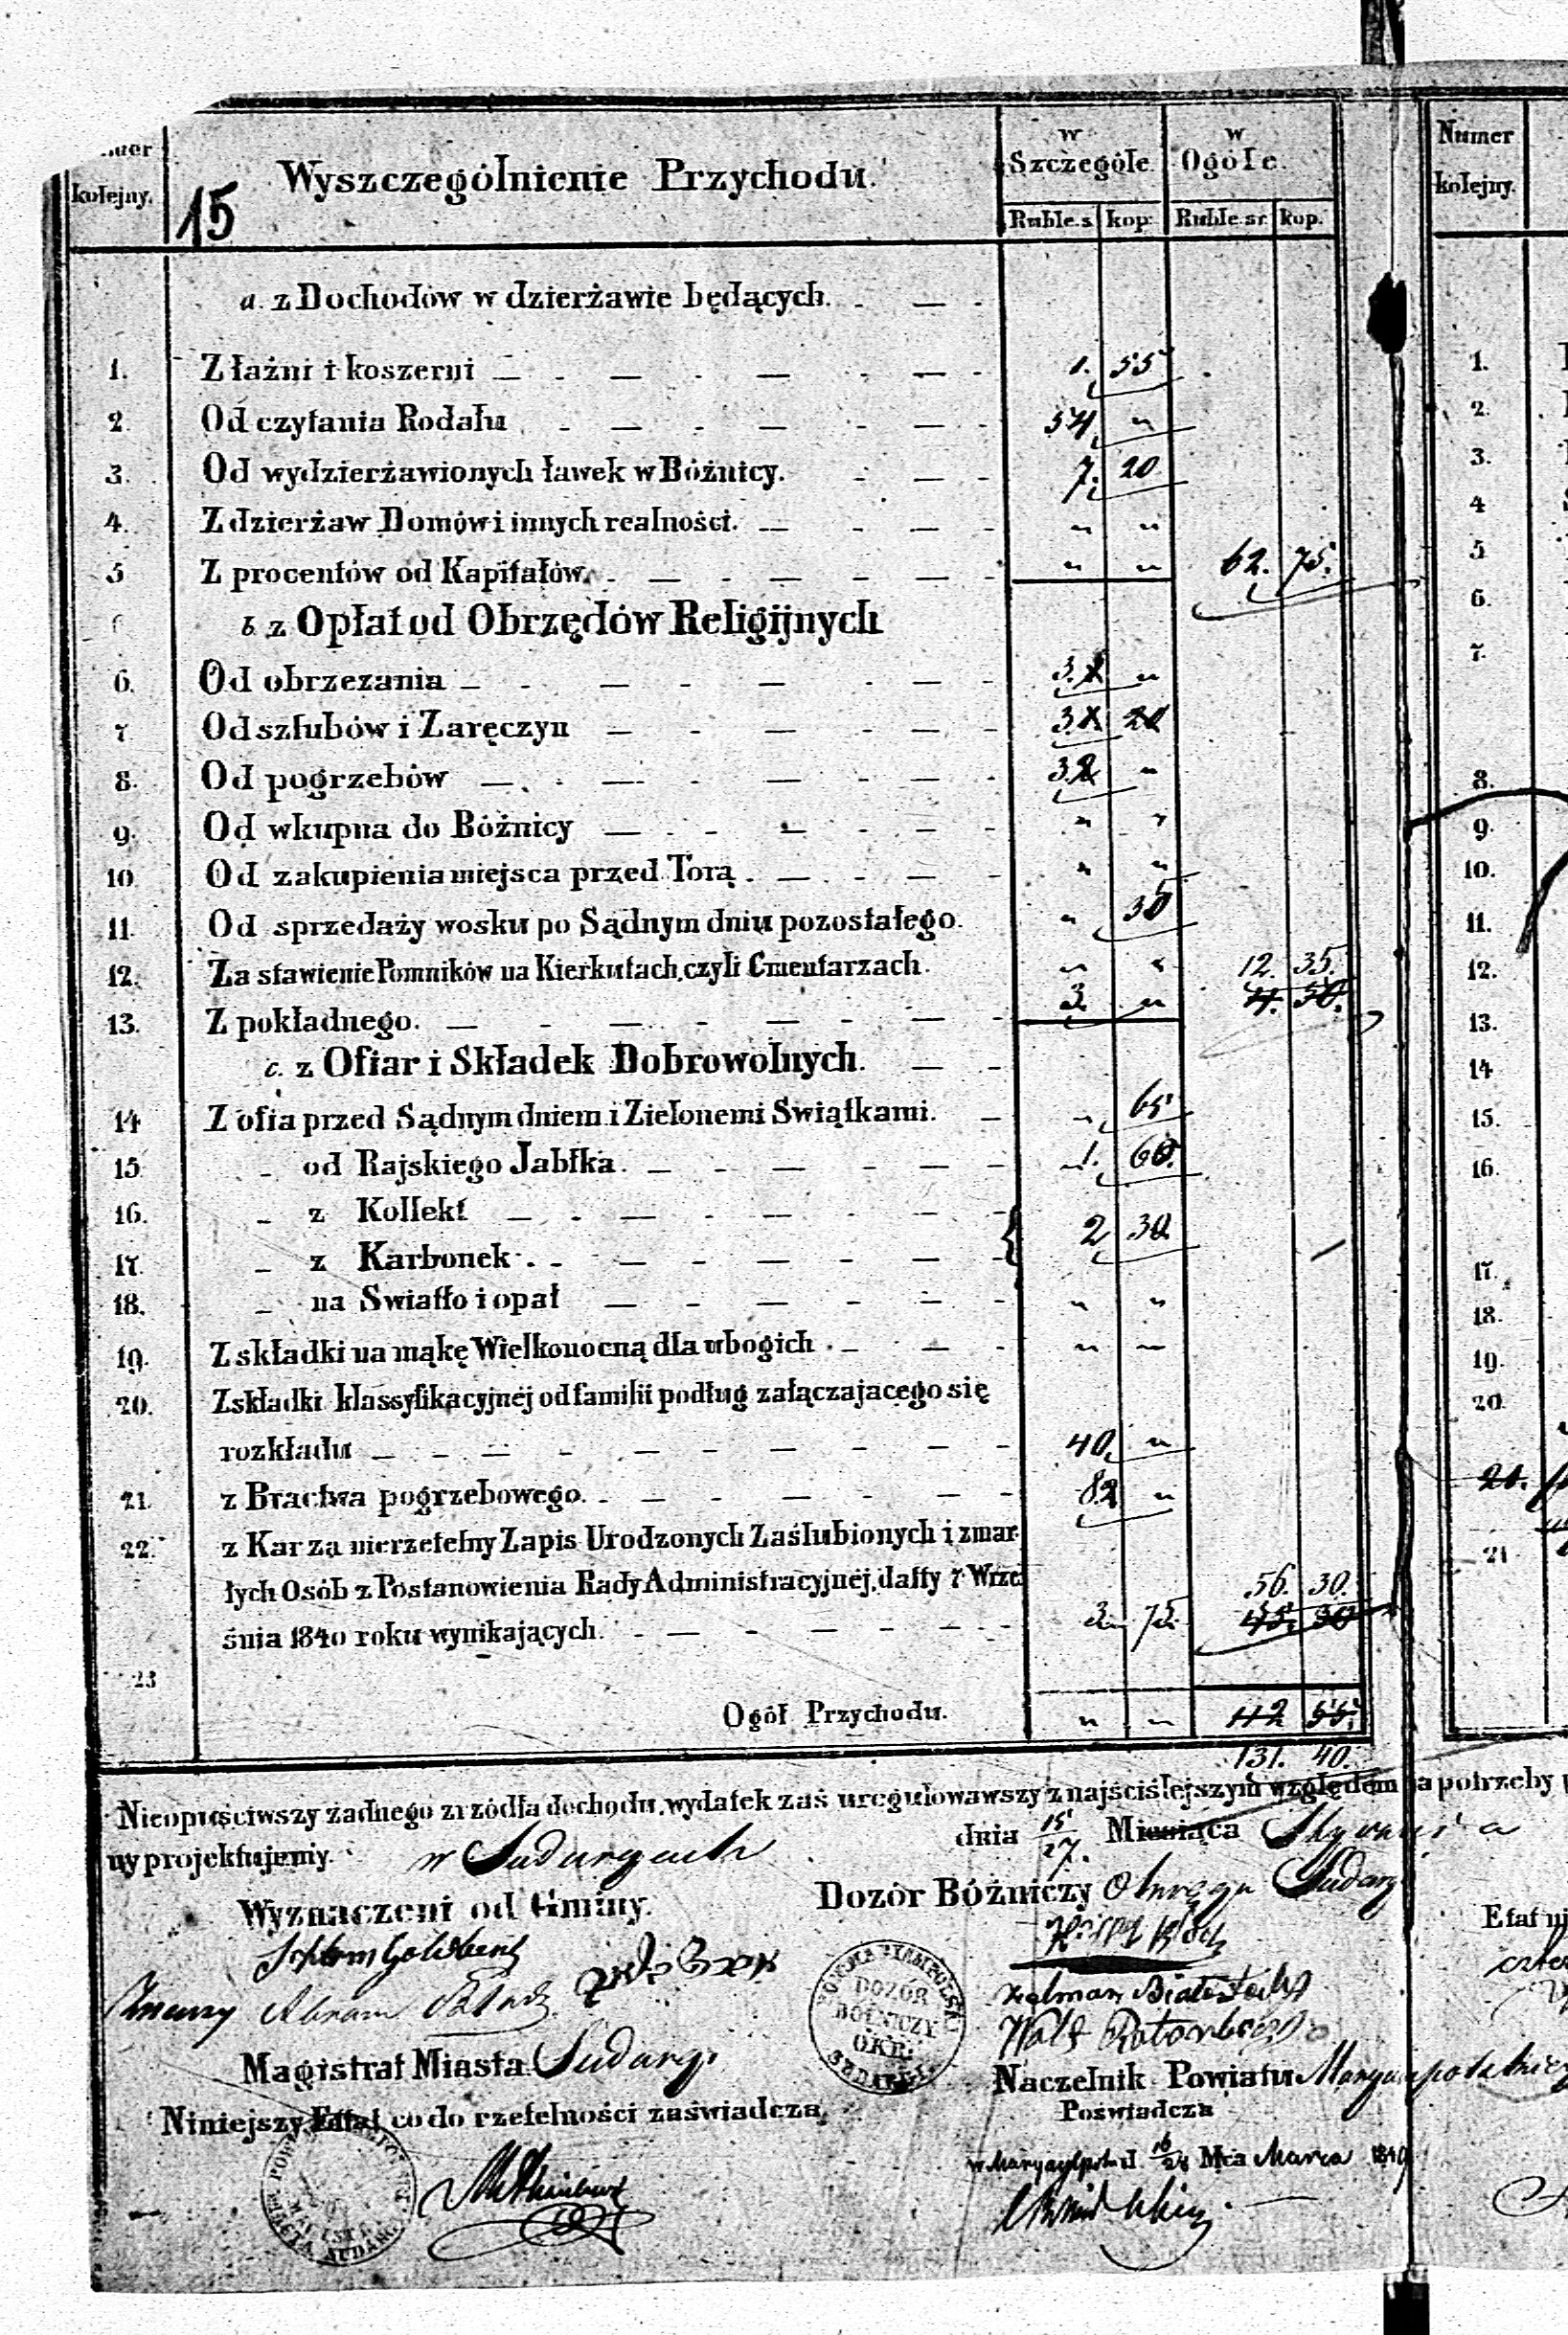 kolejny.
15
Wyszczególnienie Przychodu.
w Szczególe.
w Ogóle.
Ruble.s. kop: Ruble.sr. kop.
Numer kolejny.
a. z Dochodów w dzierżawie będących.
1. Z łaźni i koszerni 1. 55
2. Od czytania Rodału 54 "
3. Od wydzierżawionych ławek w Bóżnicy. 7. 20
4. Z dzierżaw Domów i innych realności. " "
5 Z procentów od Kapitałów. " " 62. 75.
b. z Opłat od Obrzędów Religijnych
6. Od obrzezania 3. "
7. Od szlubów i Zaręczyn 3.
8. Od pogrzebów 3. "
9. Od wkupna do Bóżnicy " "
10. Od zakupienia miejsca przed Torą. " "
11. Od sprzedaży wosku po Sądnym dniu pozostałego. " 35
12. Za stawienie Pomników na Kierkutach, czyli Cmentarzach. " " 12. 35.
13. Z pokładnego. 3 " 4. 50.
c. z Ofiar i Składek Dobrowolnych.
14 Z ofia przed Sądnym dniem i Zielonemi Swiątkami. " 65
15 " od Rajskiego Jabłka. 1. 60.
16. " z Kollekt
17. " z Karbonek. 2 30
18. " na Swiatło i opał " "
19. Z składki na mąkę Wielkonocną dla ubogich. " "
20. Z składki klassyfikacyjnéj od familii podług załączajacego się
rozkładu 40. "
21. z Bractwa pogrzebowego. 8 "
22. z Kar za nierzetelny Zapis Urodzonych Zaślubionych i zmar-
łych Osób z Postanowienia Rady Administracyjnéj, datty 7 Wrze 56. 30.
śnia 1840 roku wynikających. 3 75.
23
Ogół Przychodu. " " 112 55.
131. 40.
Nieopuściwszy żadnego zrzódła dochodu, wydatek zaś uregulowawszy z najściślejszym względem na potrzeby
ny projektujemy. w Sudargach dnia 15/27. Miesiąca Stycznia
Wyznaczeni od Gminy. Dozór Bóżniczy Okręgu Sudarg
Abram
Zelman
Wolf
DOZÓR
BOŻNICZY
OKR:
Magistrat Miasta Sudargi
Naczelnik Powiatu Maryampolskiego
Niniejszy Etat co do rzetelności zaświadcza,
Poświadcza
w Maryampolu d 16/28 Mca Marca 1849
1.
2.
3.
4
5
6.
7.
8.
9.
10.
11.
12.
13.
14
15.
16.
17.
18.
19.
20.
21